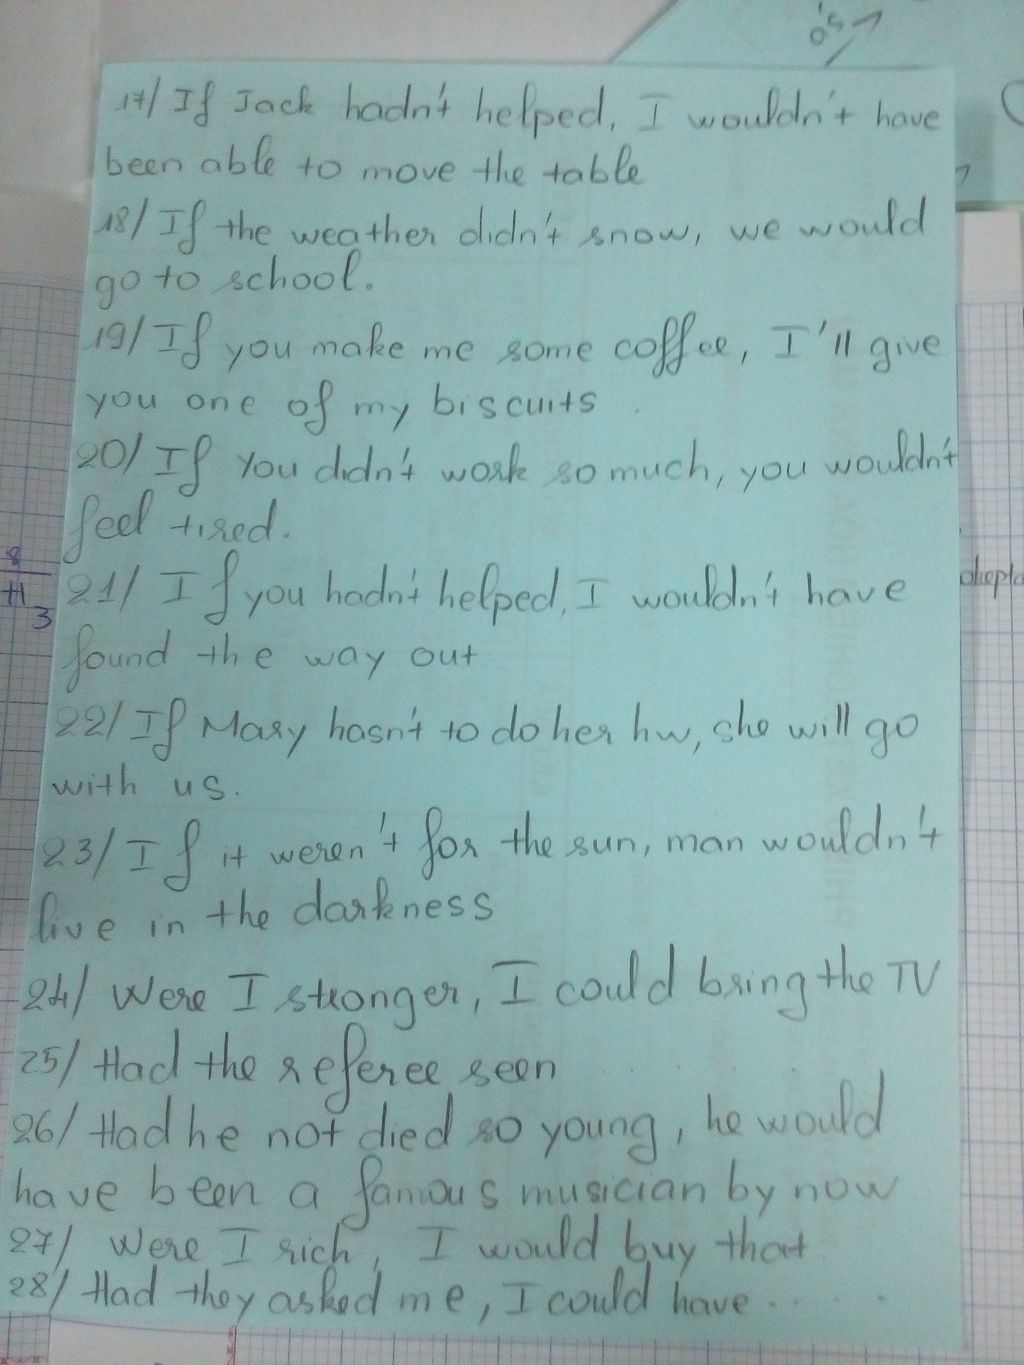 o's
17/ If Jack hadn't helped, I wouldn't have
been able to move the table
18/ If the weather didn't snow, we would
go to school.
19/ If you make me some coffee, I'll give
you one of my biscuits.
20/ If you didn't work so much, you wouldn't
feel tired.
21/ If you hadn't helped, I wouldn't have
found the way out
22/ If Mary hasn't to do her hw, she will go
with us.
23/ If it weren't for the sun, man wouldn't
live in the darkness
24/ Were I stronger, I could bring the TV
25/ Had the referee seen . . . . . .
26/ Had he not died so young, he would
have been a famous musician by now
27/ Were I rich, I would buy that
28/ Had they asked me, I could have . . . . .
8
H
3